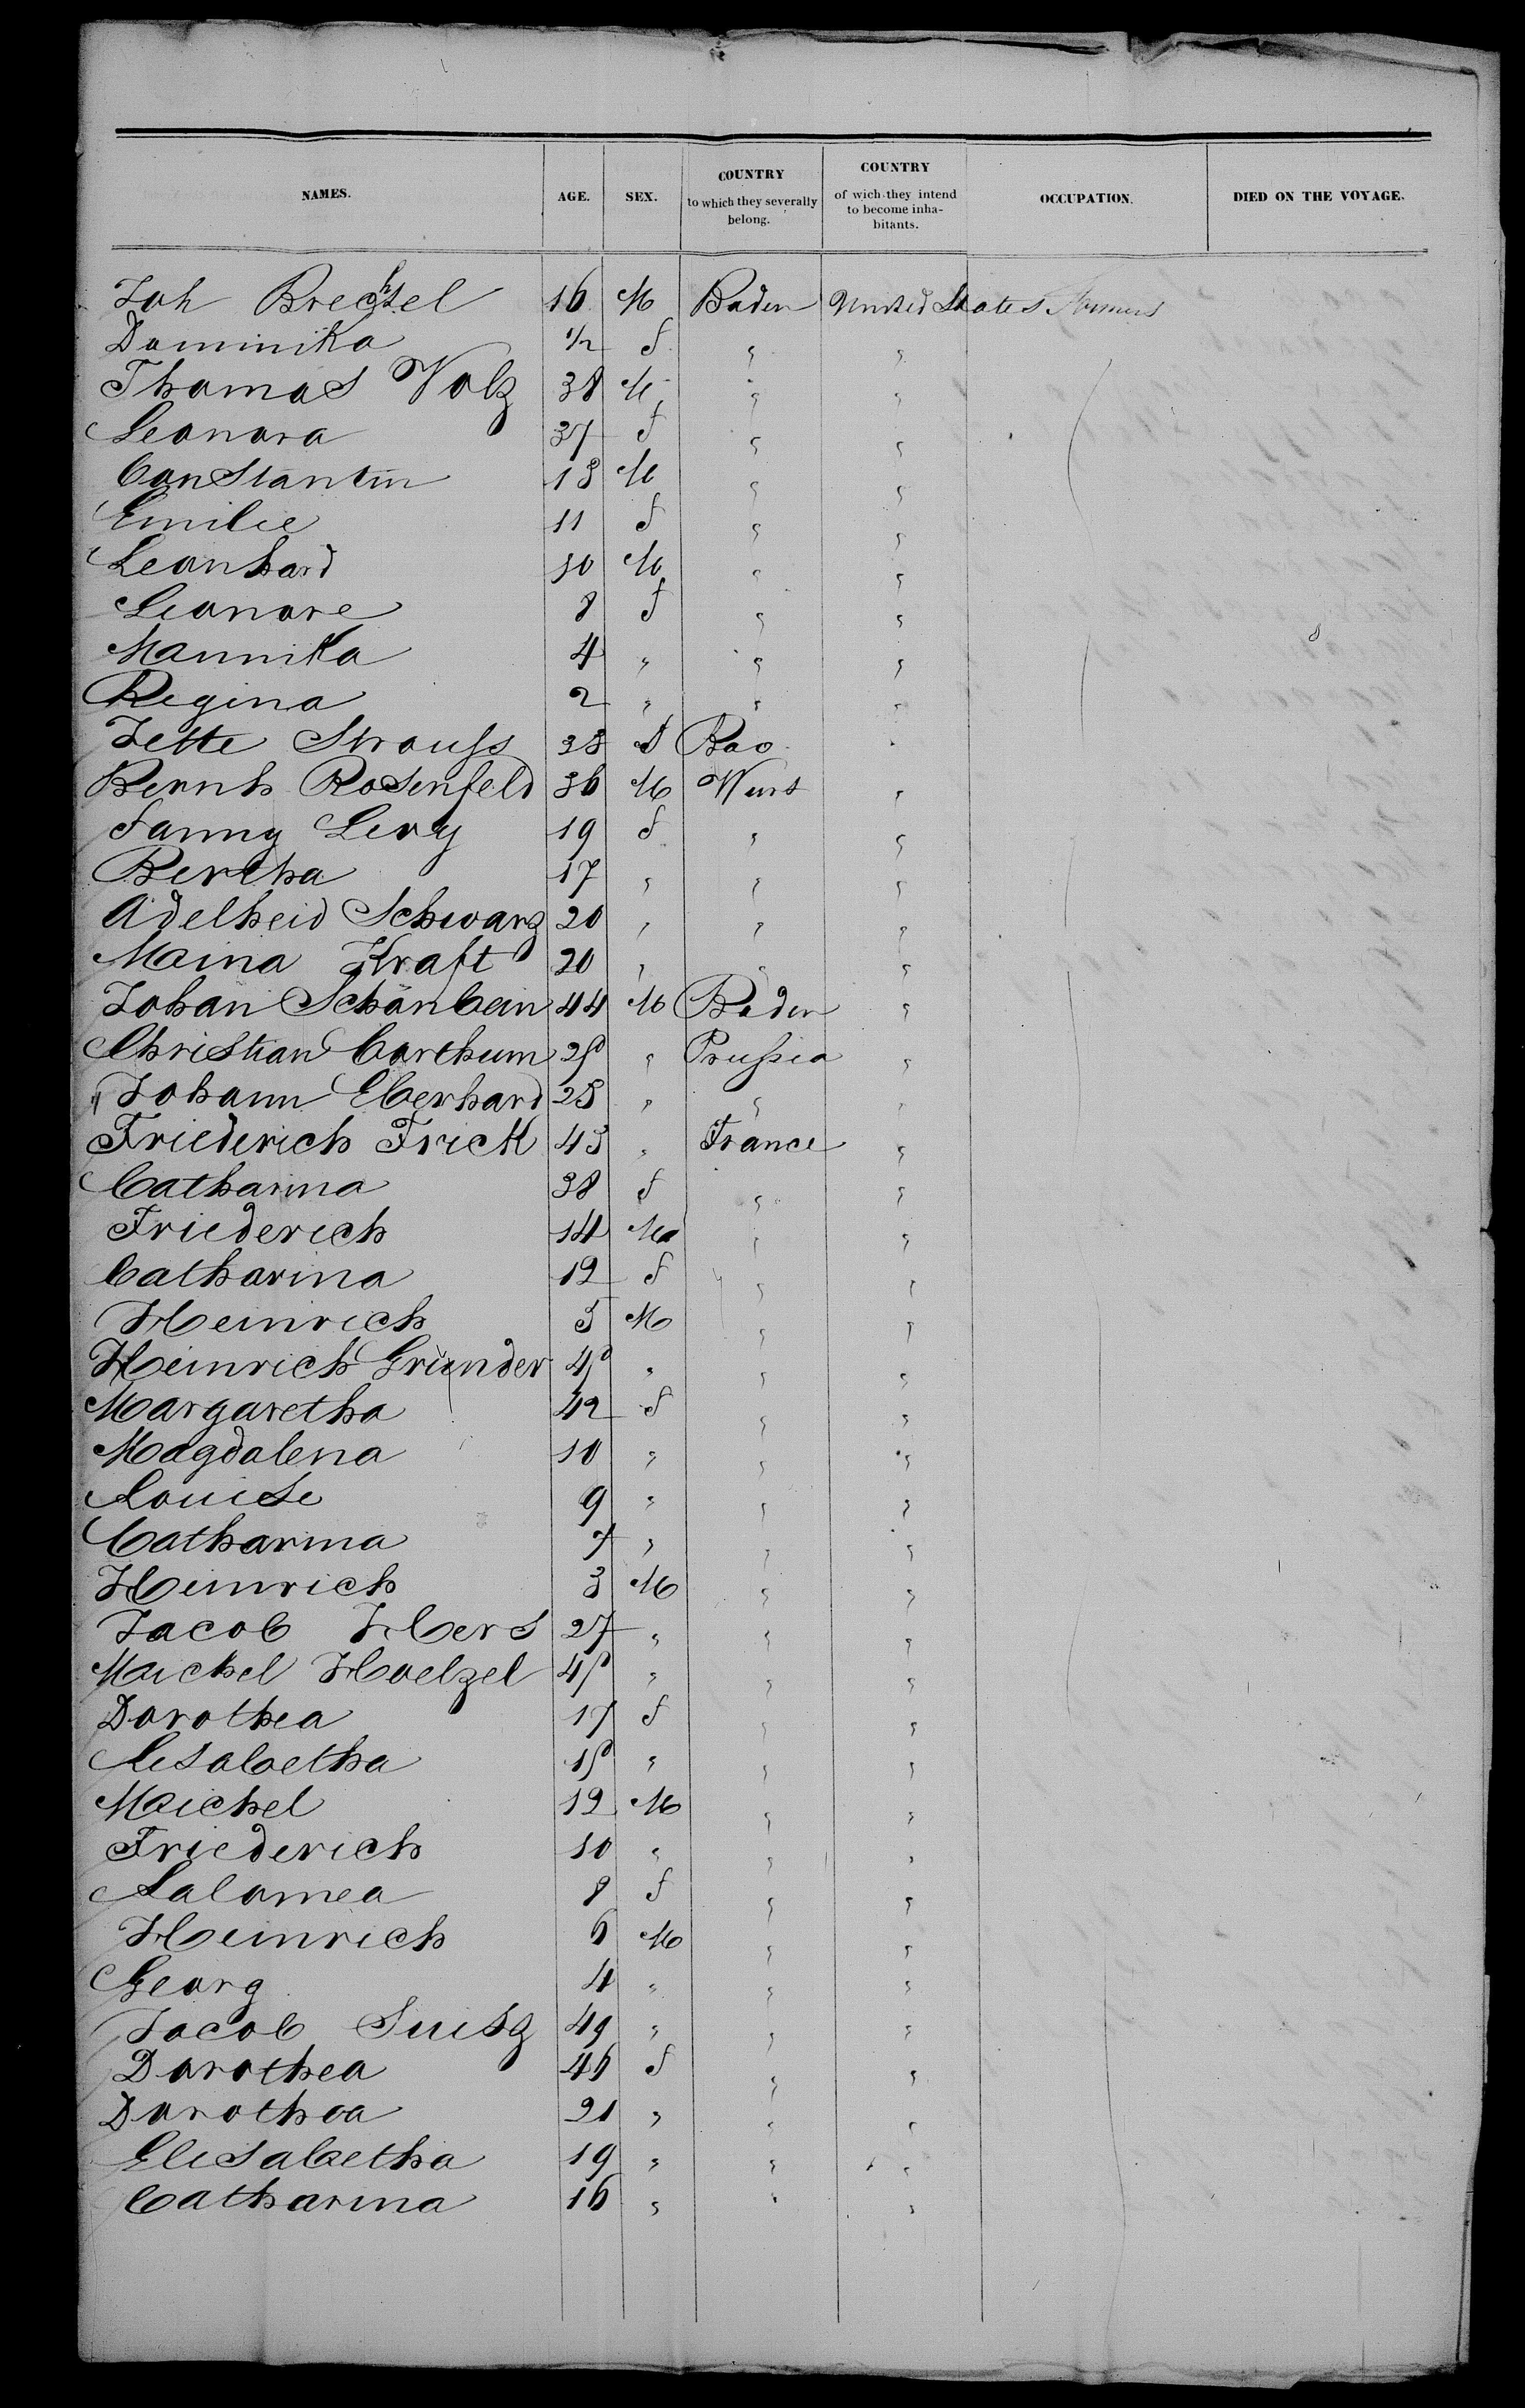 NAMES. AGE. SEX. COUNTRY to which they severally belong. COUNTRY of wich they intend to become inhabitants. OCCUPATION. DIED ON THE VOYAGE.
Joh Brechtel 16 M Baden United States Farmers
Dominika 1/2 f " "
Thomas Volz 38 M " "
Leonora 37 f " "
Constantin 13 M " "
Emilie 11 f " "
Leonhard 10 M " "
Leonore 8 f " "
Mannika 4 " " "
Regina 2 " " "
Jette Strauss 33 f "
Bernh Rosenfeld 36 M Wurt "
Fanny Levy 19 f " "
Bertha 17 " " "
Adelheid Schwarz 20 " " "
Maina Kraft 20 " " "
Johan Schönbein 44 M Baden "
Christian Carthum 25 " Prussia "
Johann Eberhard 28 " " "
Friederich Frick 43 " France "
Catharina 38 f " "
Friederich 14 M " "
Catharina 12 f " "
Heinrich 5 M " "
Heinrich Gründer 45 " " "
Margaretha 42 f " "
Magdalena 10 " " "
Louise 9 " " "
Catharina 7 " " "
Heinrich 3 M " "
Jacob Hers 27 " " "
Michel Hoelzel 45 " " "
Dorothea 17 f " "
Elisabetha 15 " " "
Michel 12 M " "
Friederich 10 " " "
Salomea 8 f " "
Heinrich 6 M " "
Georg 4 " " "
Jacob 49 " " "
Dorothea 46 f " "
Dorothea 21 " " "
Elisabetha 19 " " "
Catharina 16 " " "